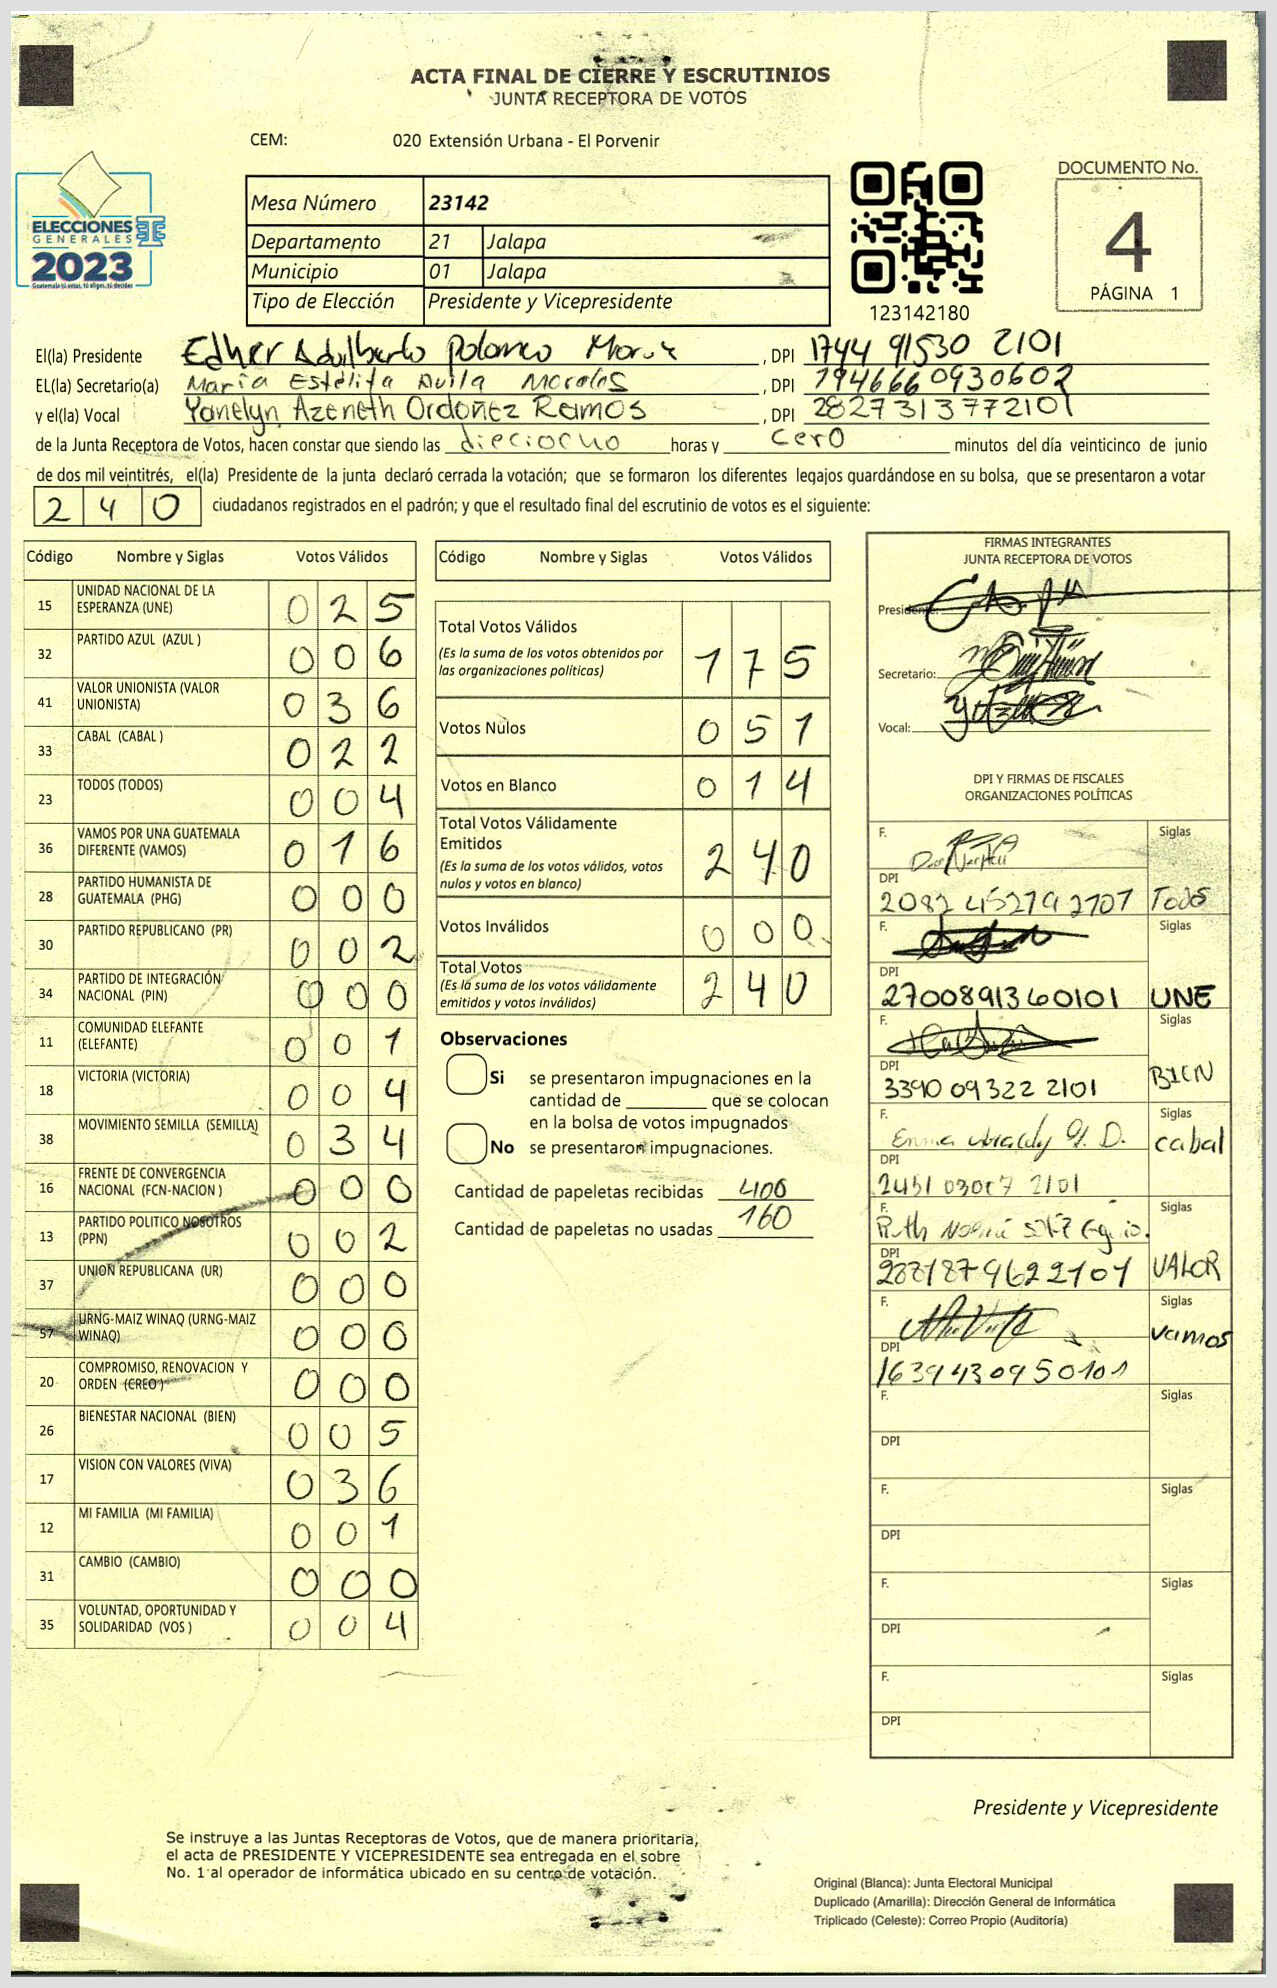 ACTA FINAL DE CIERRE Y ESCRUTINIOS
JUNTA RECEPTORA DE VOTOS
CEM: 020 Extensión Urbana - El Porvenir
ELECCIONES
GENERALES
2023
Guatemala tú votas, tú eliges, tú decides
Mesa Número 23142
Departamento 21 Jalapa
Municipio 01 Jalapa
Tipo de Elección Presidente y Vicepresidente
123142180
DOCUMENTO No.
4
PÁGINA 1
El(la) Presidente Edher Adulberto Polanco , DPI 1744 91530 2101
EL(la) Secretario(a) María Estélita Avila Morales , DPI 794666 0930602
y el(la) Vocal Yanelyn Azeneth Ordoñez Ramos , DPI 2827313772101
de la Junta Receptora de Votos, hacen constar que siendo las dieciocho horas y cero minutos del día veinticinco de junio
de dos mil veintitrés, el(la) Presidente de la junta declaró cerrada la votación; que se formaron los diferentes legajos guardándose en su bolsa, que se presentaron a votar
240 ciudadanos registrados en el padrón; y que el resultado final del escrutinio de votos es el siguiente:
Código Nombre y Siglas Votos Válidos
15 UNIDAD NACIONAL DE LA ESPERANZA (UNE) 025
32 PARTIDO AZUL (AZUL ) 006
41 VALOR UNIONISTA (VALOR UNIONISTA) 036
33 CABAL (CABAL ) 022
23 TODOS (TODOS) 004
36 VAMOS POR UNA GUATEMALA DIFERENTE (VAMOS) 016
28 PARTIDO HUMANISTA DE GUATEMALA (PHG) 000
30 PARTIDO REPUBLICANO (PR) 002
34 PARTIDO DE INTEGRACIÓN NACIONAL (PIN) 000
11 COMUNIDAD ELEFANTE (ELEFANTE) 001
18 VICTORIA (VICTORIA) 004
38 MOVIMIENTO SEMILLA (SEMILLA) 034
16 FRENTE DE CONVERGENCIA NACIONAL (FCN-NACION ) 000
13 PARTIDO POLITICO NOSOTROS (PPN) 002
37 UNION REPUBLICANA (UR) 000
57 URNG-MAIZ WINAQ (URNG-MAIZ WINAQ) 000
20 COMPROMISO, RENOVACION Y ORDEN (CREO ) 000
26 BIENESTAR NACIONAL (BIEN) 005
17 VISION CON VALORES (VIVA) 036
12 MI FAMILIA (MI FAMILIA) 001
31 CAMBIO (CAMBIO) 000
35 VOLUNTAD, OPORTUNIDAD Y SOLIDARIDAD (VOS ) 004
Código Nombre y Siglas Votos Válidos
Total Votos Válidos 175
(Es la suma de los votos obtenidos por
las organizaciones políticas)
Votos Nulos 051
Votos en Blanco 014
Total Votos Válidamente
Emitidos 240
(Es la suma de los votos válidos, votos
nulos y votos en blanco)
Votos Inválidos 000
Total Votos 240
(Es la suma de los votos válidamente
emitidos y votos inválidos)
Observaciones
Si se presentaron impugnaciones en la
cantidad de ________ que se colocan
en la bolsa de votos impugnados
No se presentaron impugnaciones.
Cantidad de papeletas recibidas 400
Cantidad de papeletas no usadas 160
FIRMAS INTEGRANTES
JUNTA RECEPTORA DE VOTOS
Presidente:
Secretario:
Vocal:
DPI Y FIRMAS DE FISCALES
ORGANIZACIONES POLÍTICAS
F. Siglas
DPI
2082 45279 2707 Todos
F. Siglas
DPI
2700891360101 UNE
F. Siglas
DPI
3390 09322 2101 BIEN
F. Siglas
cabal
DPI
2101
F. Ruth Siglas
DPI
2871879622101 VALOR
F. Siglas
vamos
DPI
1639430950101
F. Siglas
DPI
F. Siglas
DPI
F. Siglas
DPI
F. Siglas
DPI
Presidente y Vicepresidente
Se instruye a las Juntas Receptoras de Votos, que de manera prioritaria,
el acta de PRESIDENTE Y VICEPRESIDENTE sea entregada en el sobre
No. 1 al operador de informática ubicado en su centro de votación.
Original (Blanca): Junta Electoral Municipal
Duplicado (Amarilla): Dirección General de Informática
Triplicado (Celeste): Correo Propio (Auditoría)